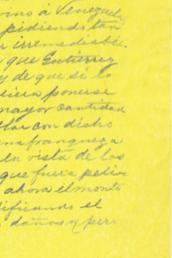 vino á Venezuel
pidiendo tra
irremediable.
que Gutierrez
y de que si lo
diera ponerse
mayor cantidad
llar con dicho
na franqueza
la vista de los
que fuera pedir
ahora el monto
dificando el
daños y per